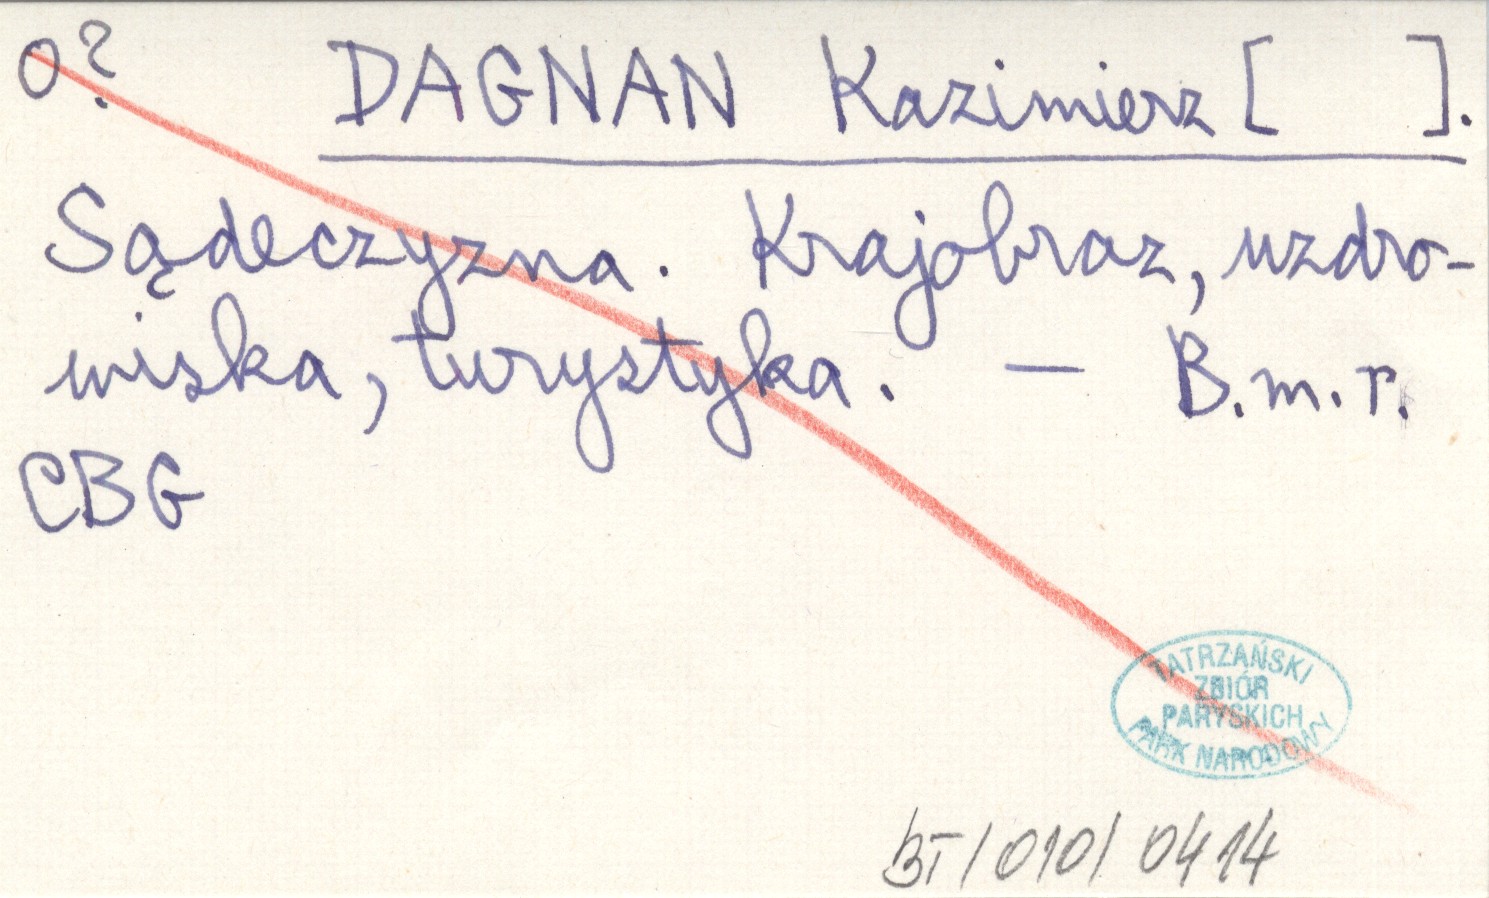 O? DAGNAN Kazimierz [ ].
Sądeczyzna. Krajobraz, uzdro-
wiska, turystyka. — B.m.r.
CBG
TATRZAŃSKI
ZBIÓR
PARYSKICH
PARK NARODOWY
BT/010/0414